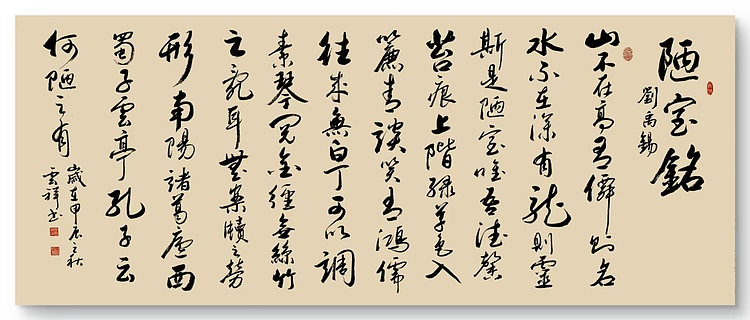 陋室銘
劉禹錫
山不在高有僊則名
水不在深有龍則靈
斯是陋室唯吾德馨
苔痕上階綠草色入
簾青談笑有鴻儒
往來無白丁可以調
素琴閱金經無絲竹
之亂耳無案牘之勞
形南陽諸葛廬西
蜀子雲亭孔子云
何陋之有
歲在甲辰之秋
雲祥書